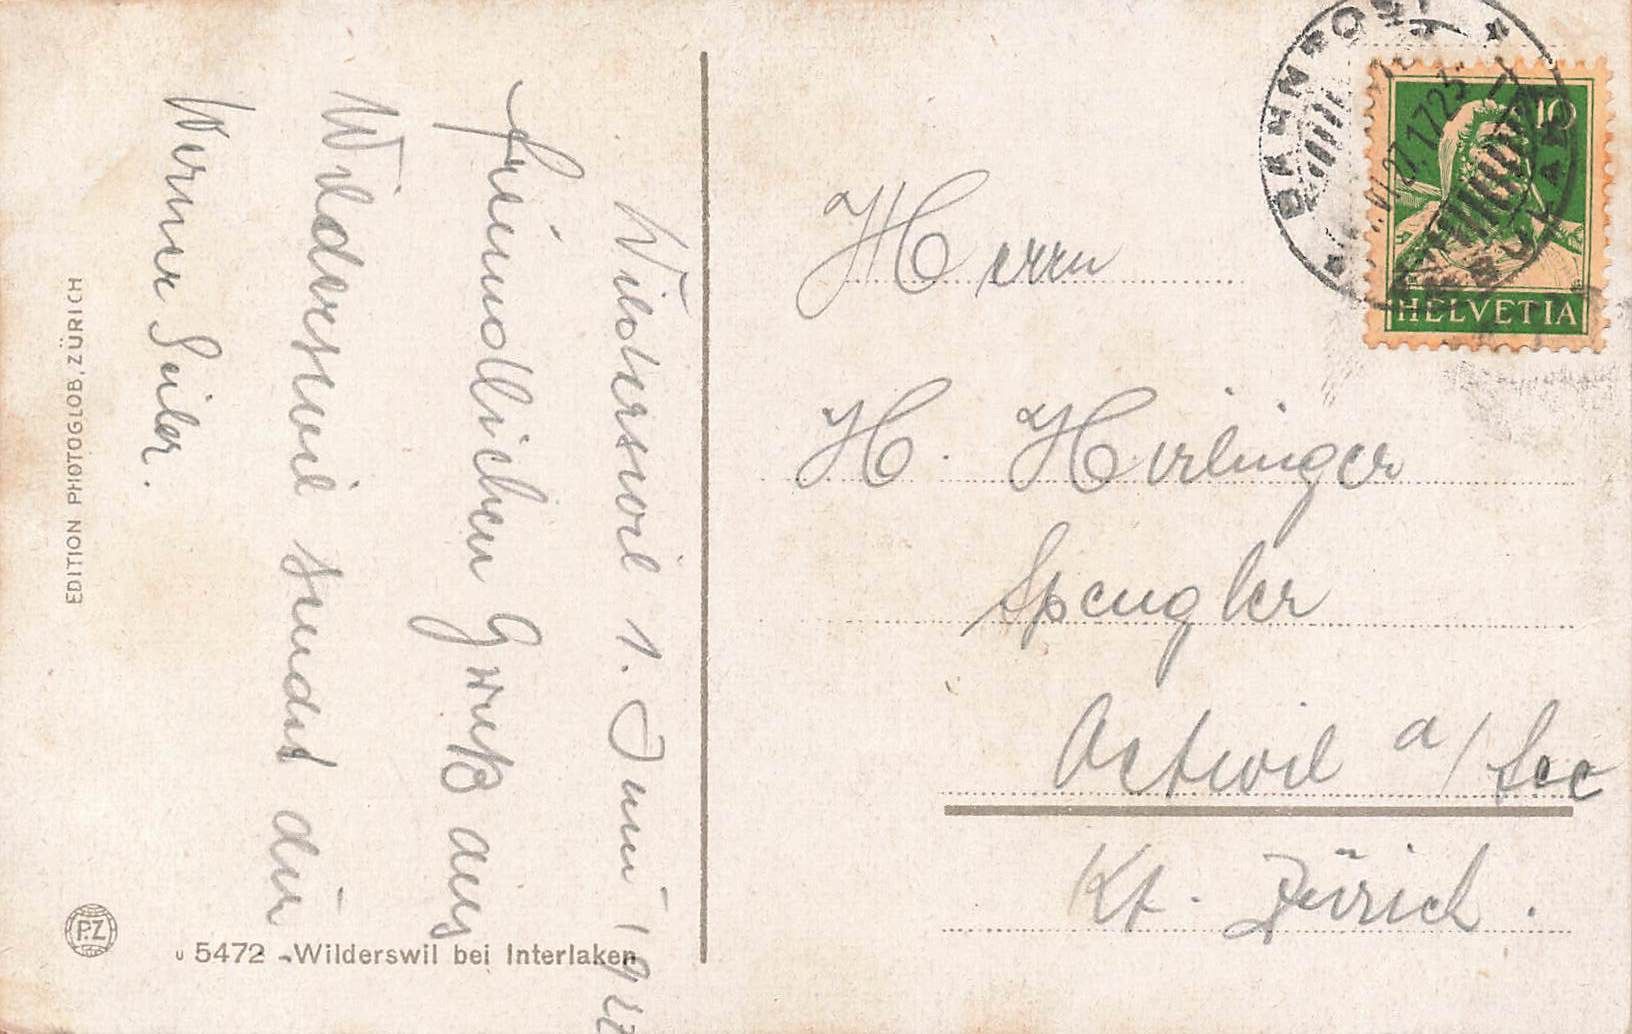 Wilderswil 1. Juni 1927
Freundlichen Gruß aus
Wilderswil sendet dir
Werner Seiler.
Herrn
H. Hirlinger
Spengler
Oetwil a/See
Kt. Zürich.
BAHNPOST
AMBULANT
10
HELVETIA
EDITION PHOTOGLOB, ZÜRICH
P.Z
5472 - Wilderswil bei Interlaken